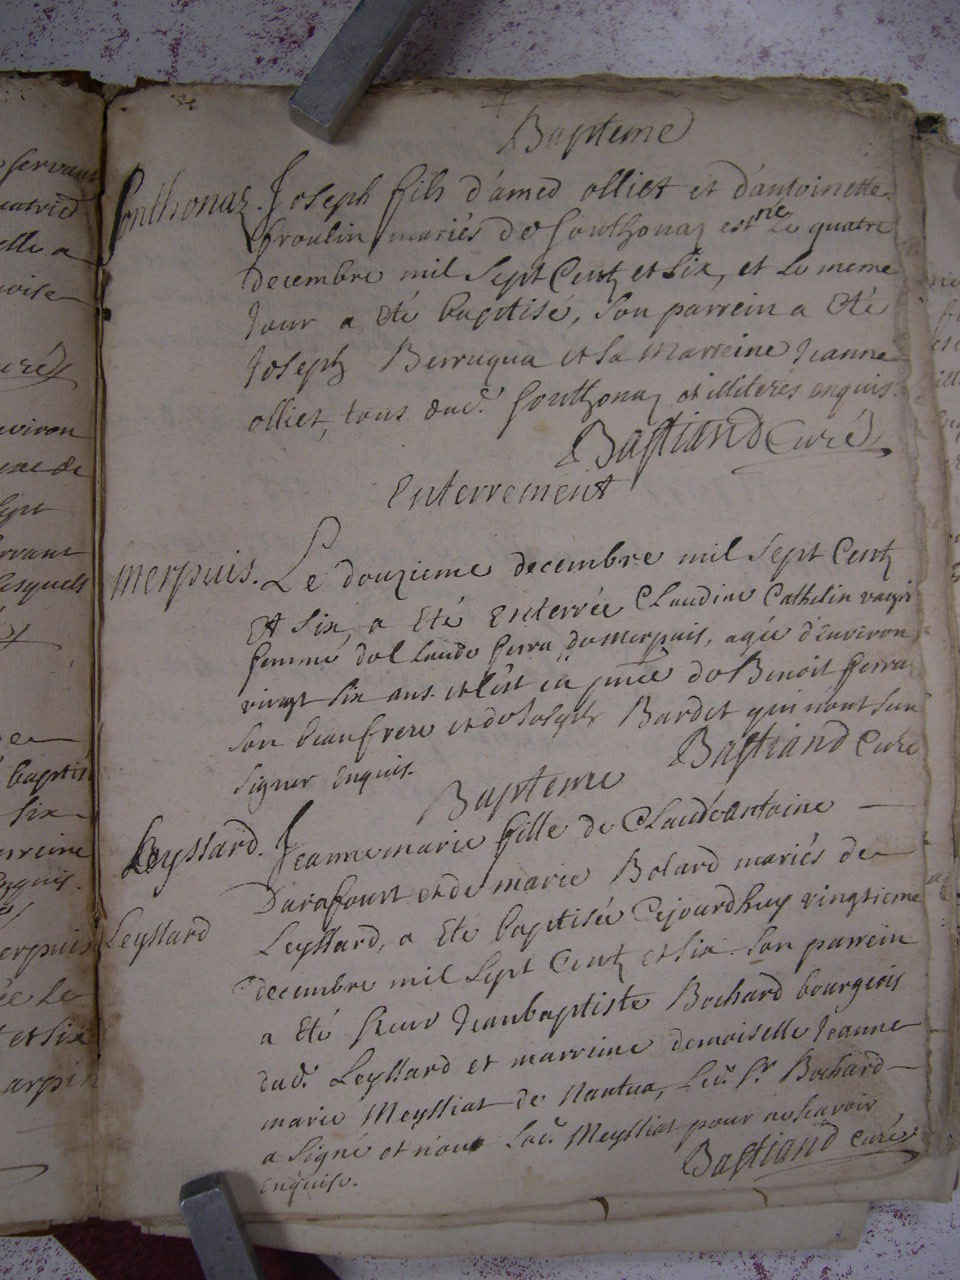 Bapteme
Sonthonaz. Joseph fils d'amed olliet et d'antoinette
froulin mariés de Sonthonaz est né le quatre
decembre mil Sept Centz et Six, et Le meme
Jour a été baptisé, Son parrein a Eté
Joseph Berruqua et Sa Marreine Jeanne
olliet, tous dud. Sonthonaz et illiterés enquis.
Bastiand Curé
Enterrement
Merpuis. Le douzieme decembre mil Sept Centz
Et Six, a Eté Enterrée Claudine Cathelin
femme de Claude ferra de Merpuis, agée d'Environ
vingt Six ans et c'est en pnce de Benoit ferra
Son beaufrere et de Joseph Bardet qui n'ont Sceu
Signer Enquis.
Bastiand Curé
Bapteme
Leyssard. Jeannemarie fille de Claudeantoine
Darafourt et de marie Bolard mariés de
Leyssard
Leyssard, a Eté baptisée Cejourdhuy vingtieme
decembre mil Sept Centz et Six. Son parrein
a Eté Sieur Jeanbaptiste Bochard bourgeois
dud. Leyssard et marreine demoiselle Jeanne
marie Meyssiat de Nantua, Led. Sr. Bochard
a Signé et non Lad. Meyssiat pour ne Scavoir
enquise.
Bastiand Curé
servant
elle a
curé
environ
servant
lesquels
baptisé
Six
enquis.
merpuis
et Six